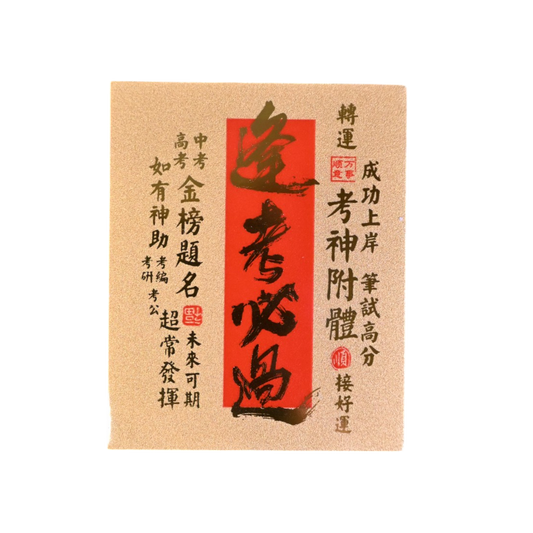 轉運
万事
順意
成功上岸 筆試高分
考神附體
順
接好運
逢考必過
中考
高考
金榜題名
如有神助
考編
考研
考公
未來可期
超常發揮